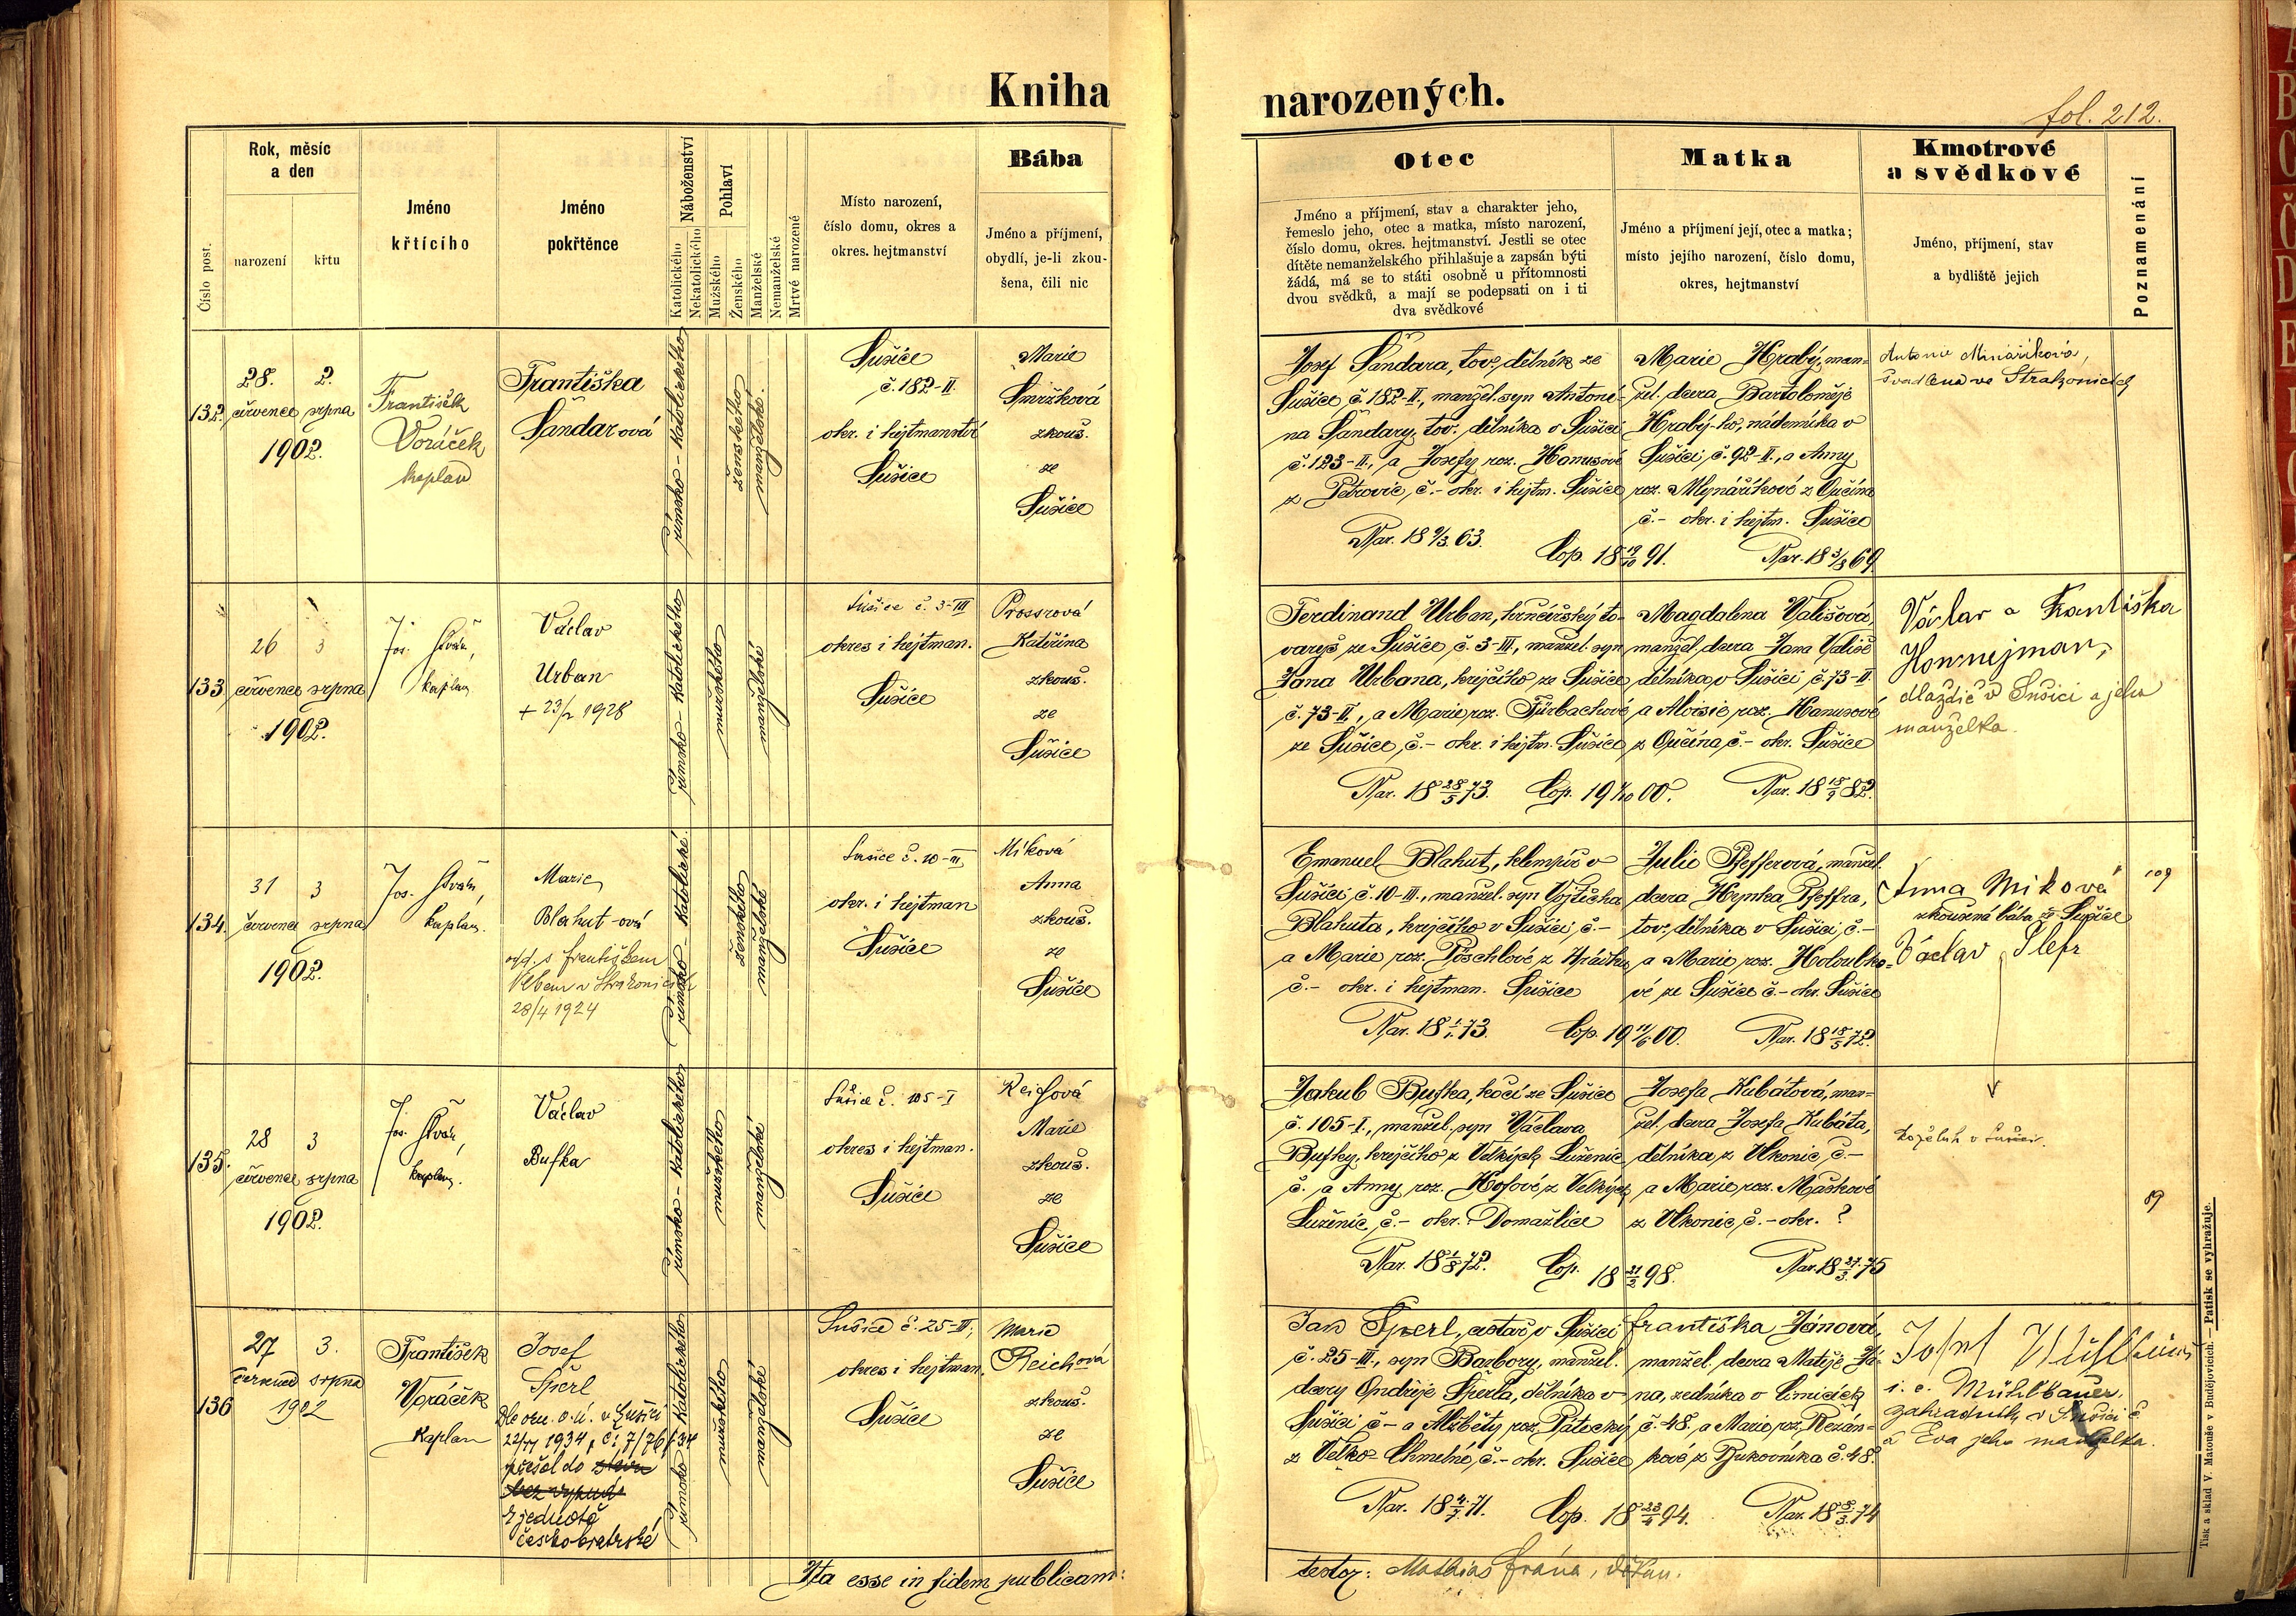 Kniha
narozených.
fol. 212.
Číslo post.
Rok, měsíc
a den
narození
křtu
Jméno
křtícího
Jméno
pokřtěnce
Náboženství
Katolického
Nekatolického
Pohlaví
Mužského
Ženského
Manželské
Nemanželské
Mrtvé narozené
Místo narození,
číslo domu, okres a
okres. hejtmanství
Bába
Jméno a příjmení,
obydlí, je-li zkou-
šena, čili nic
Otec
Jméno a příjmení, stav a charakter jeho,
řemeslo jeho, otec a matka, místo narození,
číslo domu, okres. hejtmanství. Jestli se otec
dítěte nemanželského přihlašuje a zapsán býti
žádá, má se to státi osobně u přítomnosti
dvou svědků, a mají se podepsati on i ti
dva svědkové
Matka
Jméno a příjmení její, otec a matka;
místo jejího narození, číslo domu,
okres, hejtmanství
Kmotrové
a svědkové
Jméno, příjmení, stav
a bydliště jejich
Poznamenání
132.
28. 2.
července srpna
1902.
František
Voráček
kaplan
Františka
Šandarová
římsko-katolického
ženského
manželské
Sušice
č. 182-II.
okr. i hejtmanství
Sušice
Marie
Smržková
zkouš.
ze
Sušice
Josef Šandara, tov. dělník ze
Sušice, č. 182-II., manžel. syn Antoní-
na Šandary, tov. dělníka v Sušici
č. 123-II., a Josefy roz. Hanusové
z Petrovic, č.- okr. i hejtm. Sušice
Nar. 18 9/3 63.
Cop. 18 19/10 91.
Marie Hrabý, man-
žel. dcera Bartoloměje
Hrabý-ho, nádenníka v
Sušici, č. 92-II., a Anny
roz. Mlynáříkové z Vučína
č.- okr. i hejtm. Sušice
Nar. 18 3/3 69.
švadlena ve Strakonicích
133
26 3
července srpna
1902.
Jos.
kaplan
Václav
Urban
+ 23/2 1928
římsko-katolického
mužského
manželské
Sušice č. 3-III
okres i hejtman.
Sušice
Prossrová
Kateřina
zkouš.
ze
Sušice
Ferdinand Urban, hrnčířský to-
varyš ze Sušice, č. 3-III, manžel. syn
Jana Urbana, krejčího ze Sušice
č. 73-II., a Marie roz. Fürbachové
ze Sušice, č.- okr. i hejtm. Sušice
Nar. 18 28/5 73. Cop. 19 1/10 00.
Magdalena Vališová,
manžel. dcera Jana Vališe
dělníka v Sušici, č. 73-II
a Aloisie roz. Hanusové
z Vučína, č.- okr. Sušice
Nar. 18 18/9 82.
Václav a Františka
dlaždič v Sušici a jeho
manželka.
134.
31 3
července srpna
1902.
Jos.
kaplan.
Marie
Blahut-ová
odd. s Františkem
28/4 1924
římsko-katolické.
ženského
manželské
Sušice č. 10-III
okr. i hejtman
Sušice
Míková
Anna
zkouš.
ze
Sušice
Emanuel Blahut, klempíř v
Sušici č. 10-III., manžel. syn Vojtěcha
Blahuta, krejčího v Sušici, č.-
a Marie roz. Pöschlové z
č.- okr. i hejtman. Sušice
Nar. 18 1/1 73. Cop. 19 11/6 00.
Julie Pfefferová, manžel.
dcera Hynka Pfeffra,
tov. dělníka v Sušici, č.-
a Marie roz. Holoubko-
vé ze Sušice č.- okr. Sušice
Nar. 18 18/5 72.
Anna Miková
zkoušená bába ze Sušice
Václav Šlefr
109
135.
28 3
července srpna
1902.
Jos.
kaplan.
Václav
Bufka
římsko-katolického
mužského
manželské
Sušice č. 105-I
okres i hejtman.
Sušice
Reichová
Marie
zkouš.
ze
Sušice
Jakub Bufka, kočí ze Sušice
č. 105-I., manžel. syn Václava
Bufky, krejčího z Velkých Luženic
č. a Anny roz. Kosové z Velkých
Luženic, č.- okr. Domažlice
Nar. 18 1/8 72. Cop. 18 21/2 98.
Josefa Kubátová, man-
žel. dcera Josefa Kubáta,
dělníka z Vlkonic, č.-
a Marie roz. Maškové
z Vlkonic, č.- okr. ?
Nar. 18 27/3 75
koželuh v Sušici.
89
136
27 3.
července srpna
1902
František
Voráček
Kaplan
Josef
Šperl
Dle ozn. o. ú. v Sušici
1934, č. 7/76
přešel do stavu
bez vyznání
k jednotě
českobratrské
římsko-katolického
mužského
manželské
Sušice č. 25-III,
okres i hejtman.
Sušice
Marie
Reichová
zkouš.
ze
Sušice
Jan Šperl, cestář v Sušici
č. 25-III., syn Barbory, manžel.
dcery Ondřeje Šperla, dělníka v
Sušici, č.- a Alžběty roz. Pátecký
z Velko-Chmelné, č.- okr. Sušice
Nar. 18 4/7 71. Cop. 18 23/4 94.
Františka Jánová,
manžel. dcera Matěje Já-
na, zedníka v Čimicích
č. 48, a Marie roz. Rezán-
kové z Bukovníka č. 48.
Nar. 18 8/3 74
Josef Mühlbauer
i. e. Mühlbauer,
zahradník v Sušici č.
a Eva jeho manželka.
Ita esse in fidem publicam:
testor: Mathias Frána, děkan.
Tisk a sklad V. Matouše v Budějovicích. — Patisk se vyhražuje.